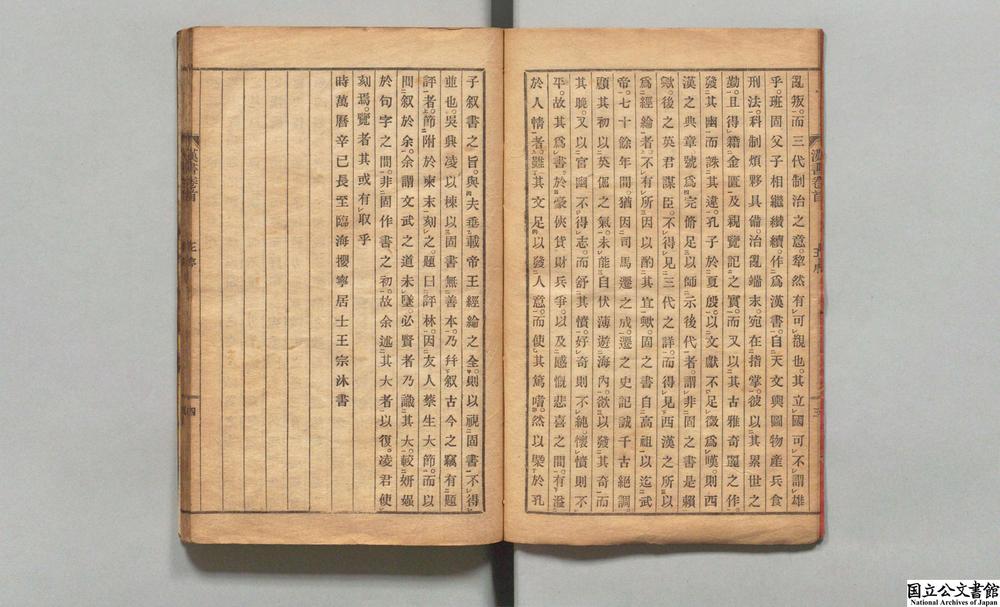 亂叛而三代制治之意犂然有可觀也其立國可不謂雄
乎班固父子相繼續作爲漢書自天文輿圖物產兵食
刑法科制煩夥具備治亂端末宛在指掌彼以其累世之
勤且得籍金匱及親覽記之實而又以其古雅奇麗之作
發其幽而誅其違孔子於夏殷以文獻不足徵爲嘆則西
漢之典章號爲完脩足以師示後代者謂非固之書是賴
歟後之英君謀臣不得見三代之詳而得見西漢之所以
爲經綸者不有所因以酌其宜歟固之書自高祖以迄武
帝七十餘年間猶因司馬遷之成遷之史記誠千古絕調
顧其初以英倔之氣未能自伏薄遊海內欲以發其奇而
其晚又以官幽不得志而舒其憤好奇則不純懷憤則不
平故其爲書於豪俠貨財兵爭以及感慨悲喜之間有溢
於人情者雖其文足以發人意而使其篤嗜然以槩於孔
漢書卷首
三
子叙書之旨與夫垂載帝王經綸之全則以視固書不得
並也吳興凌以棟以固書無善本乃幷叙古今之竊有題
評者節附於柬末刻之題曰評林因友人蔡生大節而以
間叙於余余謂文武之道未墜必賢者乃識其大較妍媸
於句字之間非固作書之初故余述其大者以復凌君使
刻焉覽者其或有取乎
時萬曆辛巳長至臨海攖寧居士王宗沐書
四
国立公文書館
National Archives of Japan